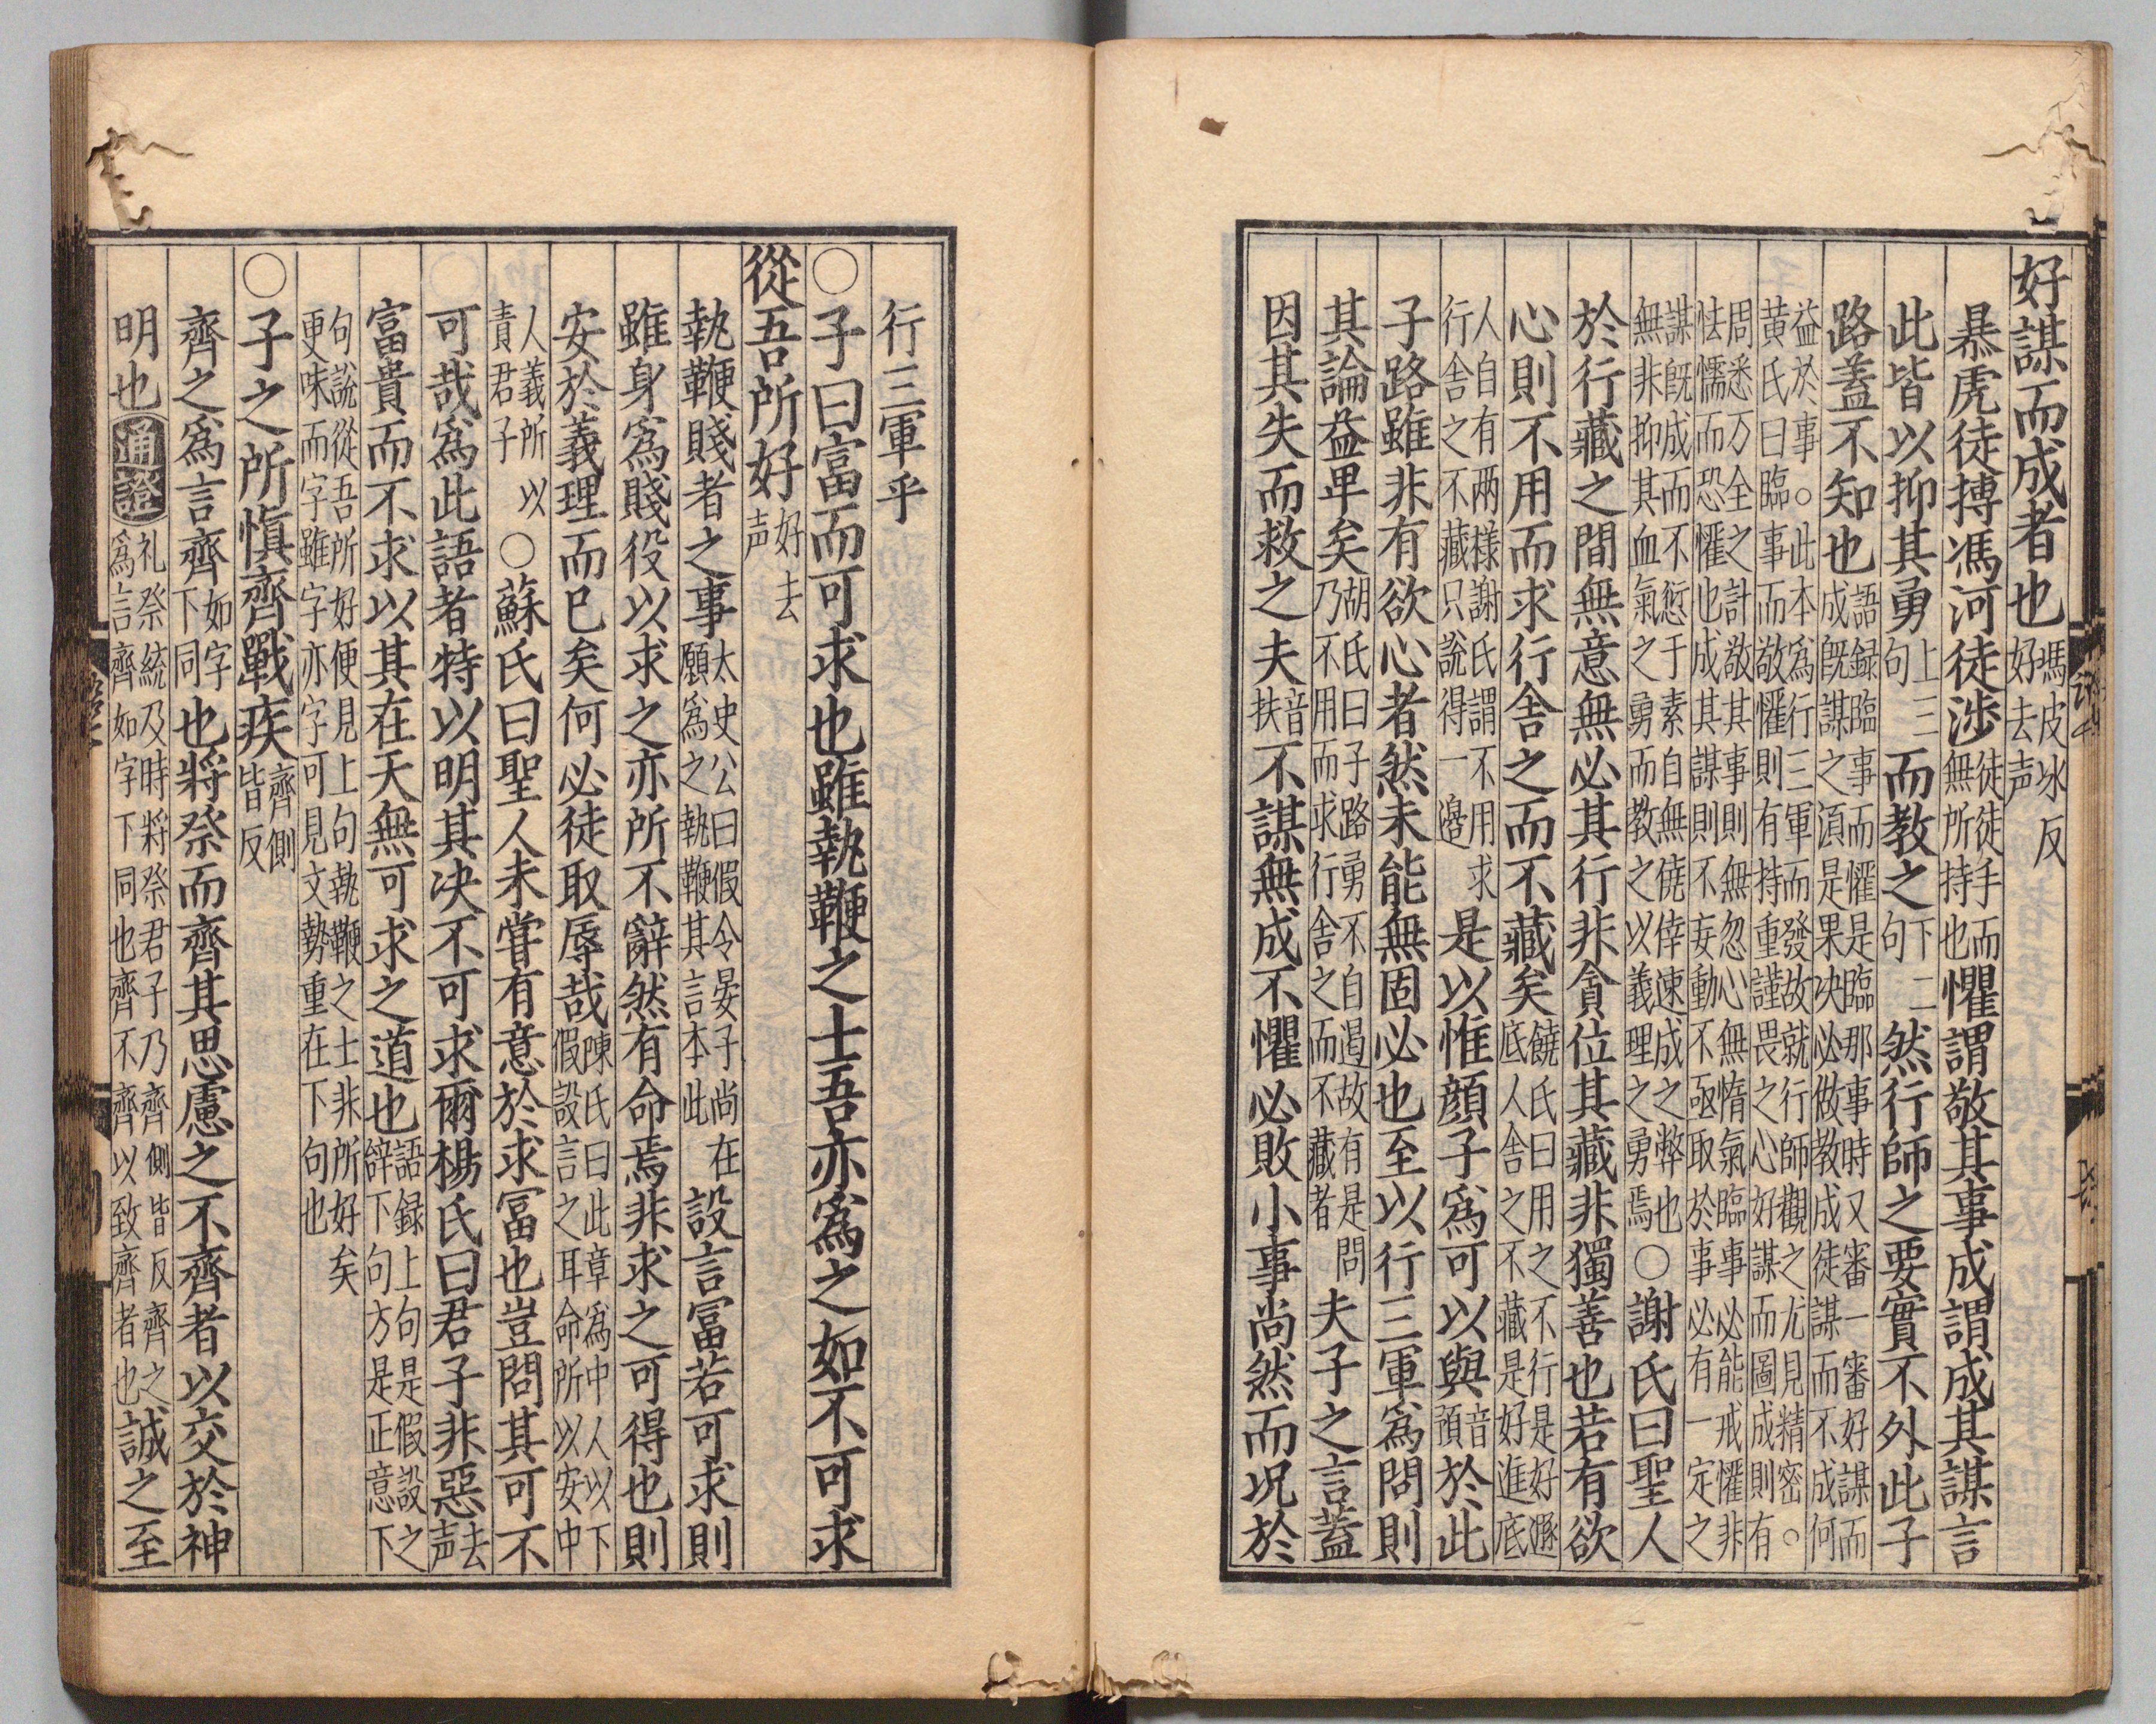 好謀而成者也馮皮冰反
好去声
暴虎徒搏馮河徒涉徒徒手而
無所持也懼謂敬其事成謂成其謀言
此皆以抑其勇上三
句而教之下二
句然行師之要實不外此子
路蓋不知也語録臨事而懼是臨那事時又審一審好謀而
成既謀之湏是果决必做教成徒謀而不成何
益於事○此本為行三軍而發故就行師觀之尤見精密○
黄氏曰臨事而敬懼則有持重謹畏之心好謀而圖成則有
周悉万全之計敬其事則無忽心無惰氣臨事必能戒懼非
怯懦而恐懼也成其謀則不妄動不亟取於事必有一定之
謀既成而不愆于素自無僥倖速成之弊也
無非抑其血氣之勇而教之以義理之勇焉○謝氏曰聖人
於行藏之間無意無必其行非貪位其藏非獨善也若有欲
心則不用而求行舍之而不藏矣饒氏曰用之不行是好遯
底人舍之不藏是好進底
人自有兩樣謝氏謂不用求
行舍之不藏只説得一邊是以惟顔子爲可以與音
預於此
子路雖非有欲心者然未能無固必也至以行三軍爲問則
其論益卑矣胡氏曰子路勇不自遏故有是問
乃不用而求行舍之而不藏者夫子之言蓋
因其失而救之夫音
扶不謀無成不懼必敗小事尚然而况於
行三軍乎
○子曰富而可求也雖執鞭之士吾亦爲之如不可求
從吾所好好去
声
執鞭賤者之事太史公曰假令晏子尚在
願爲之執鞭其言本此設言冨若可求則
雖身爲賤役以求之亦所不辭然有命焉非求之可得也則
安於義理而已矣何必徒取辱哉陳氏曰此章爲中人以下
假設言之耳命所以安中
人義所以
責君子○蘇氏曰聖人未甞有意於求冨也豈問其可不
可哉爲此語者特以明其决不可求爾楊氏曰君子非惡去
声
富貴而不求以其在天無可求之道也語録上句是假設之
辭下句方是正意下
句說從吾所好便見上句執鞭之士非所好矣
更味而字雖字亦字可見文勢重在下句也
○子之所慎齊戰疾齊側
皆反
齊之爲言齊如字
下同也將祭而齊其思慮之不齊者以交於神
明也通證礼祭統及時將祭君子乃齊側皆反齊之
爲言齊如字下同也齊不齊以致齊者也誠之至